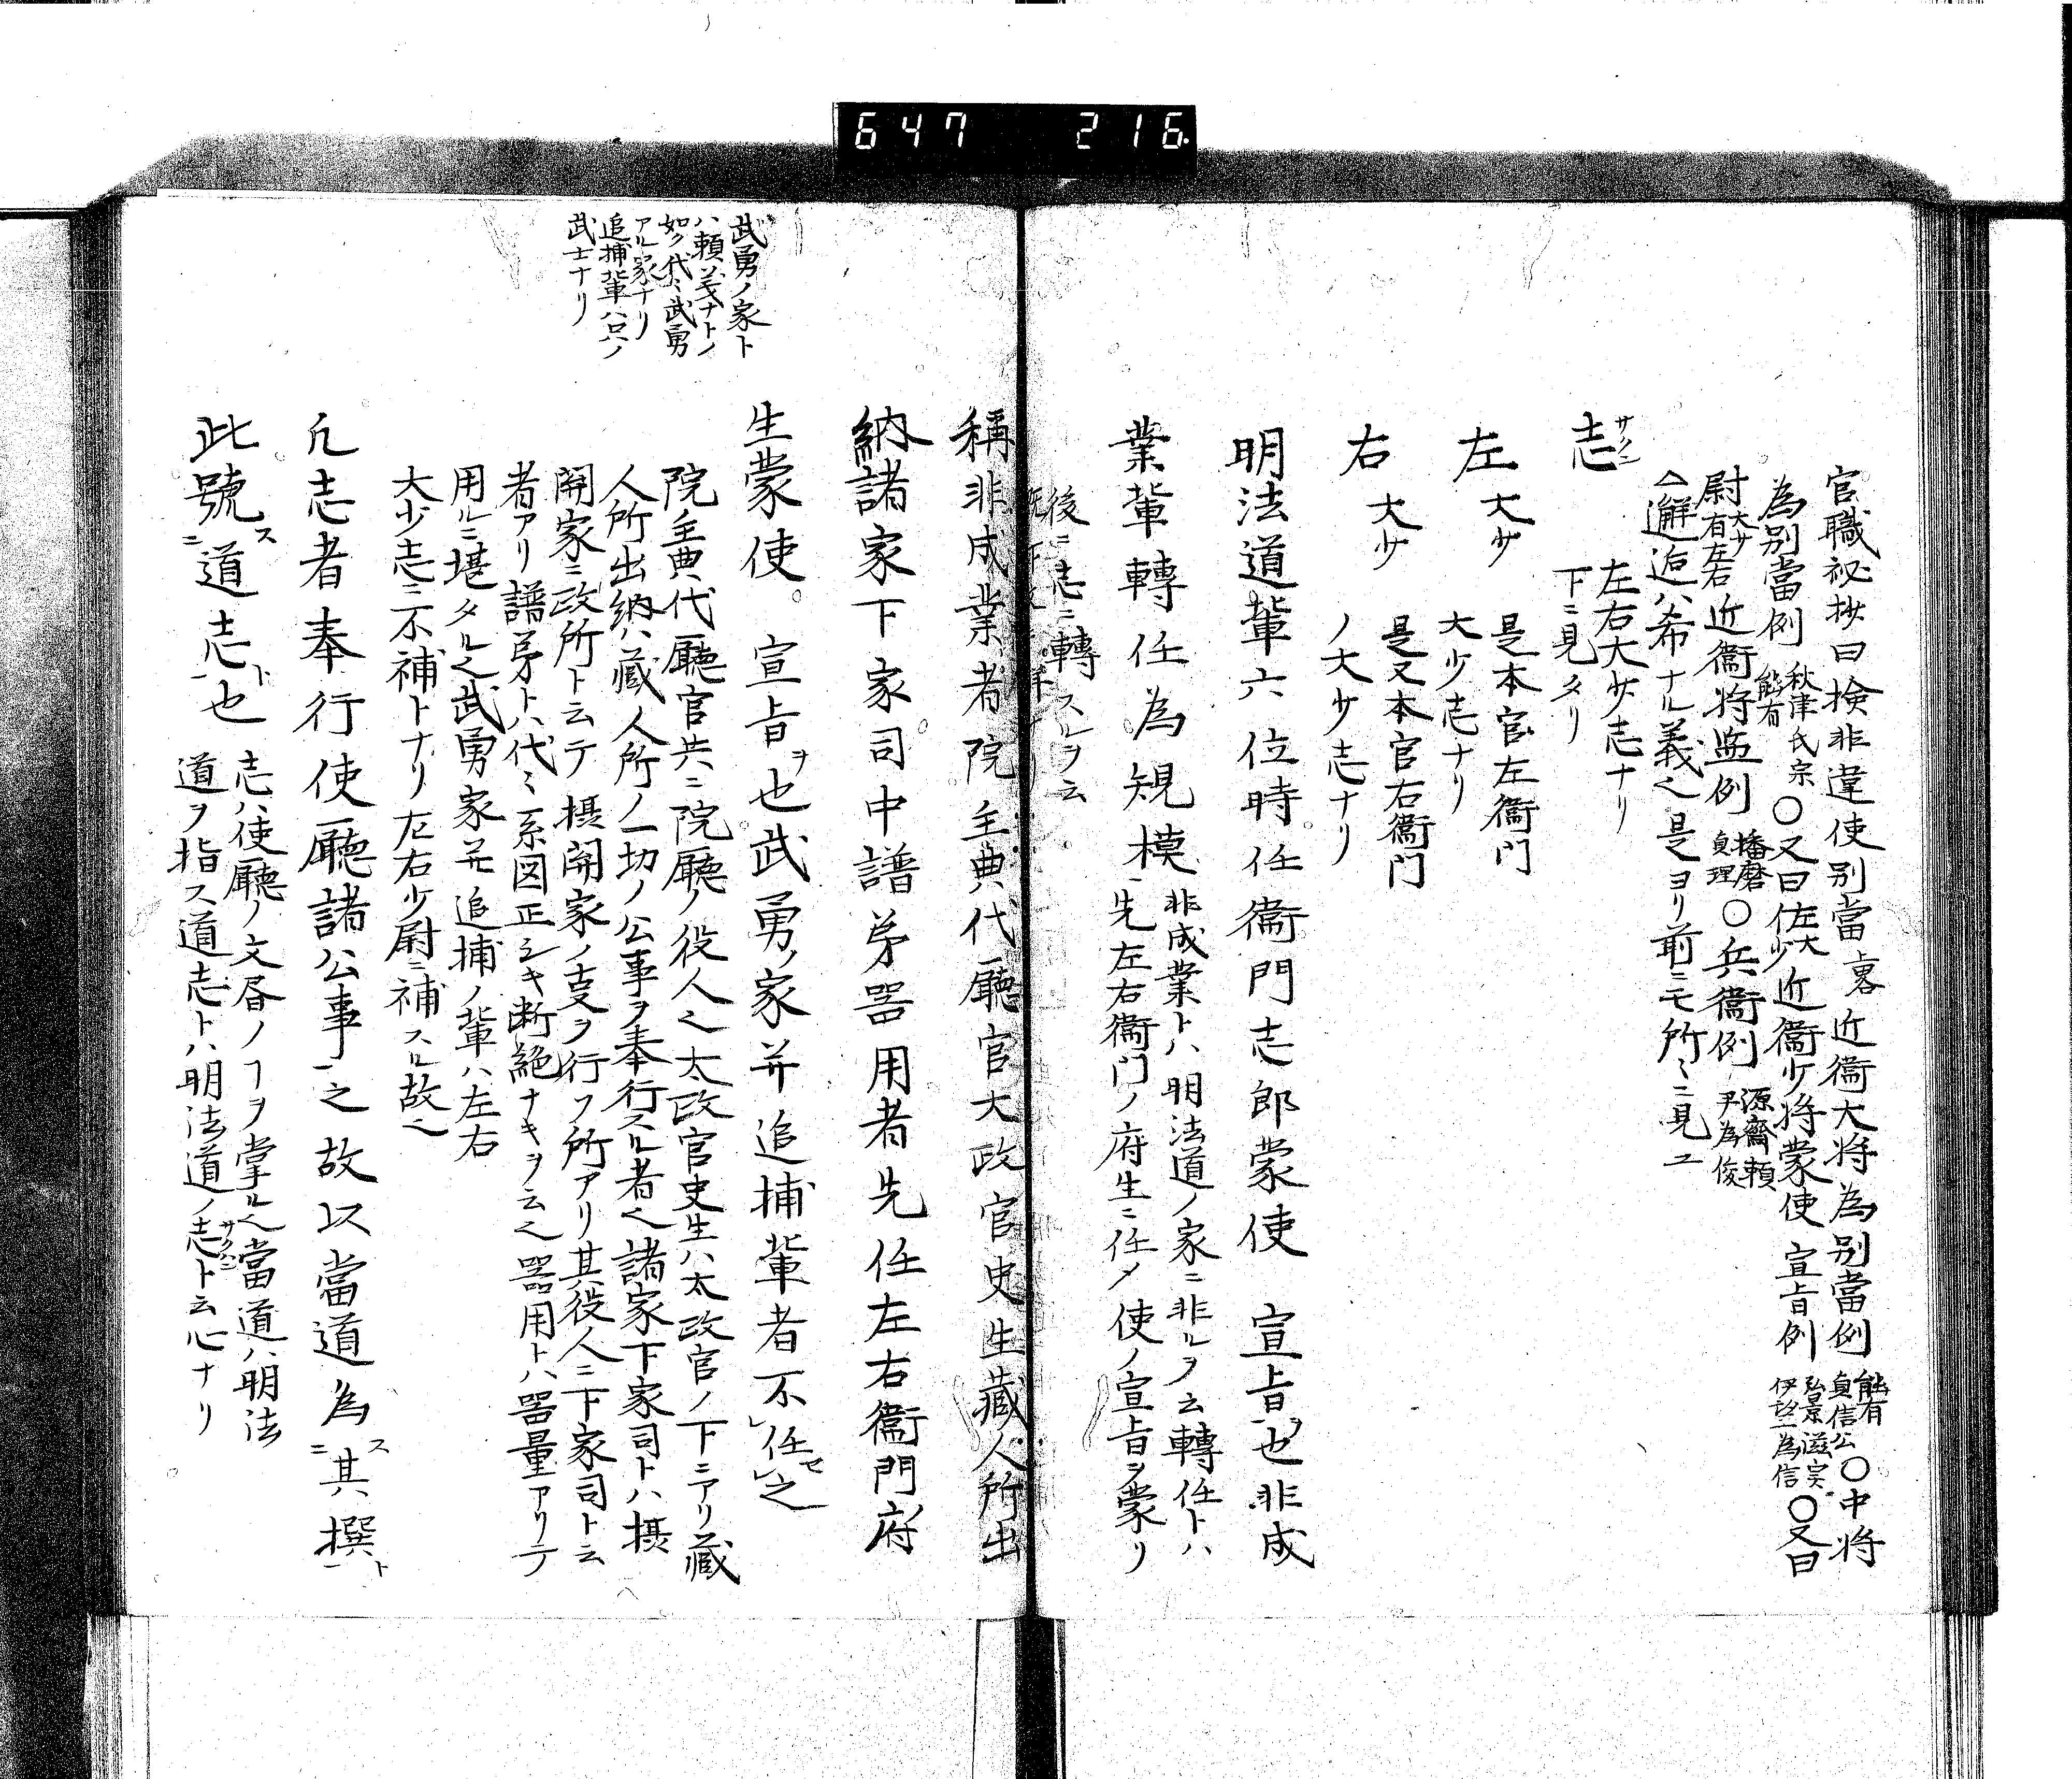 647 216
官職祕抄曰検非違使別當上畧近衞大将為別當例能有貞信公〇中将
為別當例秋津氏宗能有〇又曰佐大少近衞少将蒙使宣旨例弘景滋実伊望為信〇又曰
尉大少有左右近衞将監例播磨貞理〇兵衞例源齊頼尹為俊
△邂逅ハ希ナル義也是ヨリ前ニモ所ミニ見ユ
志サクワン
左右大少志ナリ
下ニ見タリ
左大少
是本官左衞門
大少志ナリ
右大少
是又本官右衞門
ノ大少志ナリ
明法道輩六位時任衞門志郎蒙使宣旨ヲ也非成
業輩轉任為規模
非成業トハ明法道ノ家ニ非ルヲ云轉任トハ
先左右衞門ノ府生ニ任メ使ノ宣旨ヲ蒙リ
後ニ志ニ轉スルヲ云
稱非成業者院主典代廳官大政官史生藏人所出
納諸家下家司中譜苐器用者先任左右衞門府
生蒙使宣旨ヲ也武勇ノ家并追捕輩者不任セ之
武勇ノ家ト
ハ頼義ナトノ
如ク代ミ武勇
アル家ナリ
追捕輩ハ只ノ
武士ナリ
院主典代廳官共ニ院廳ノ役人也太政官史生ハ太政官ノ下ニアリ藏
人所出納ハ藏人所ノ一切ノ公事ヲ奉行スル者也諸家下家司トハ摂
関家ニ政所ト云テ摂関家ノ叓ヲ行フ所アリ其役人ニ下家司ト云
者アリ譜苐トハ代ミ系図正シキ断絶ナキヲ云也器用トハ器量アリテ
用ルニ堪タル也武勇家并追捕ノ輩ハ左右
大少志ニ不補トナリ左右少尉ニ補スル故也
凢志者奉行使廳諸公事之故以當道為ス其撰ト
此號ス道志ト也
志ハ使廳ノ文居ノヿヲ掌ル也當道ハ明法
道ヲ指ス道志トハ明法道ノ志サクワント云心ナリ